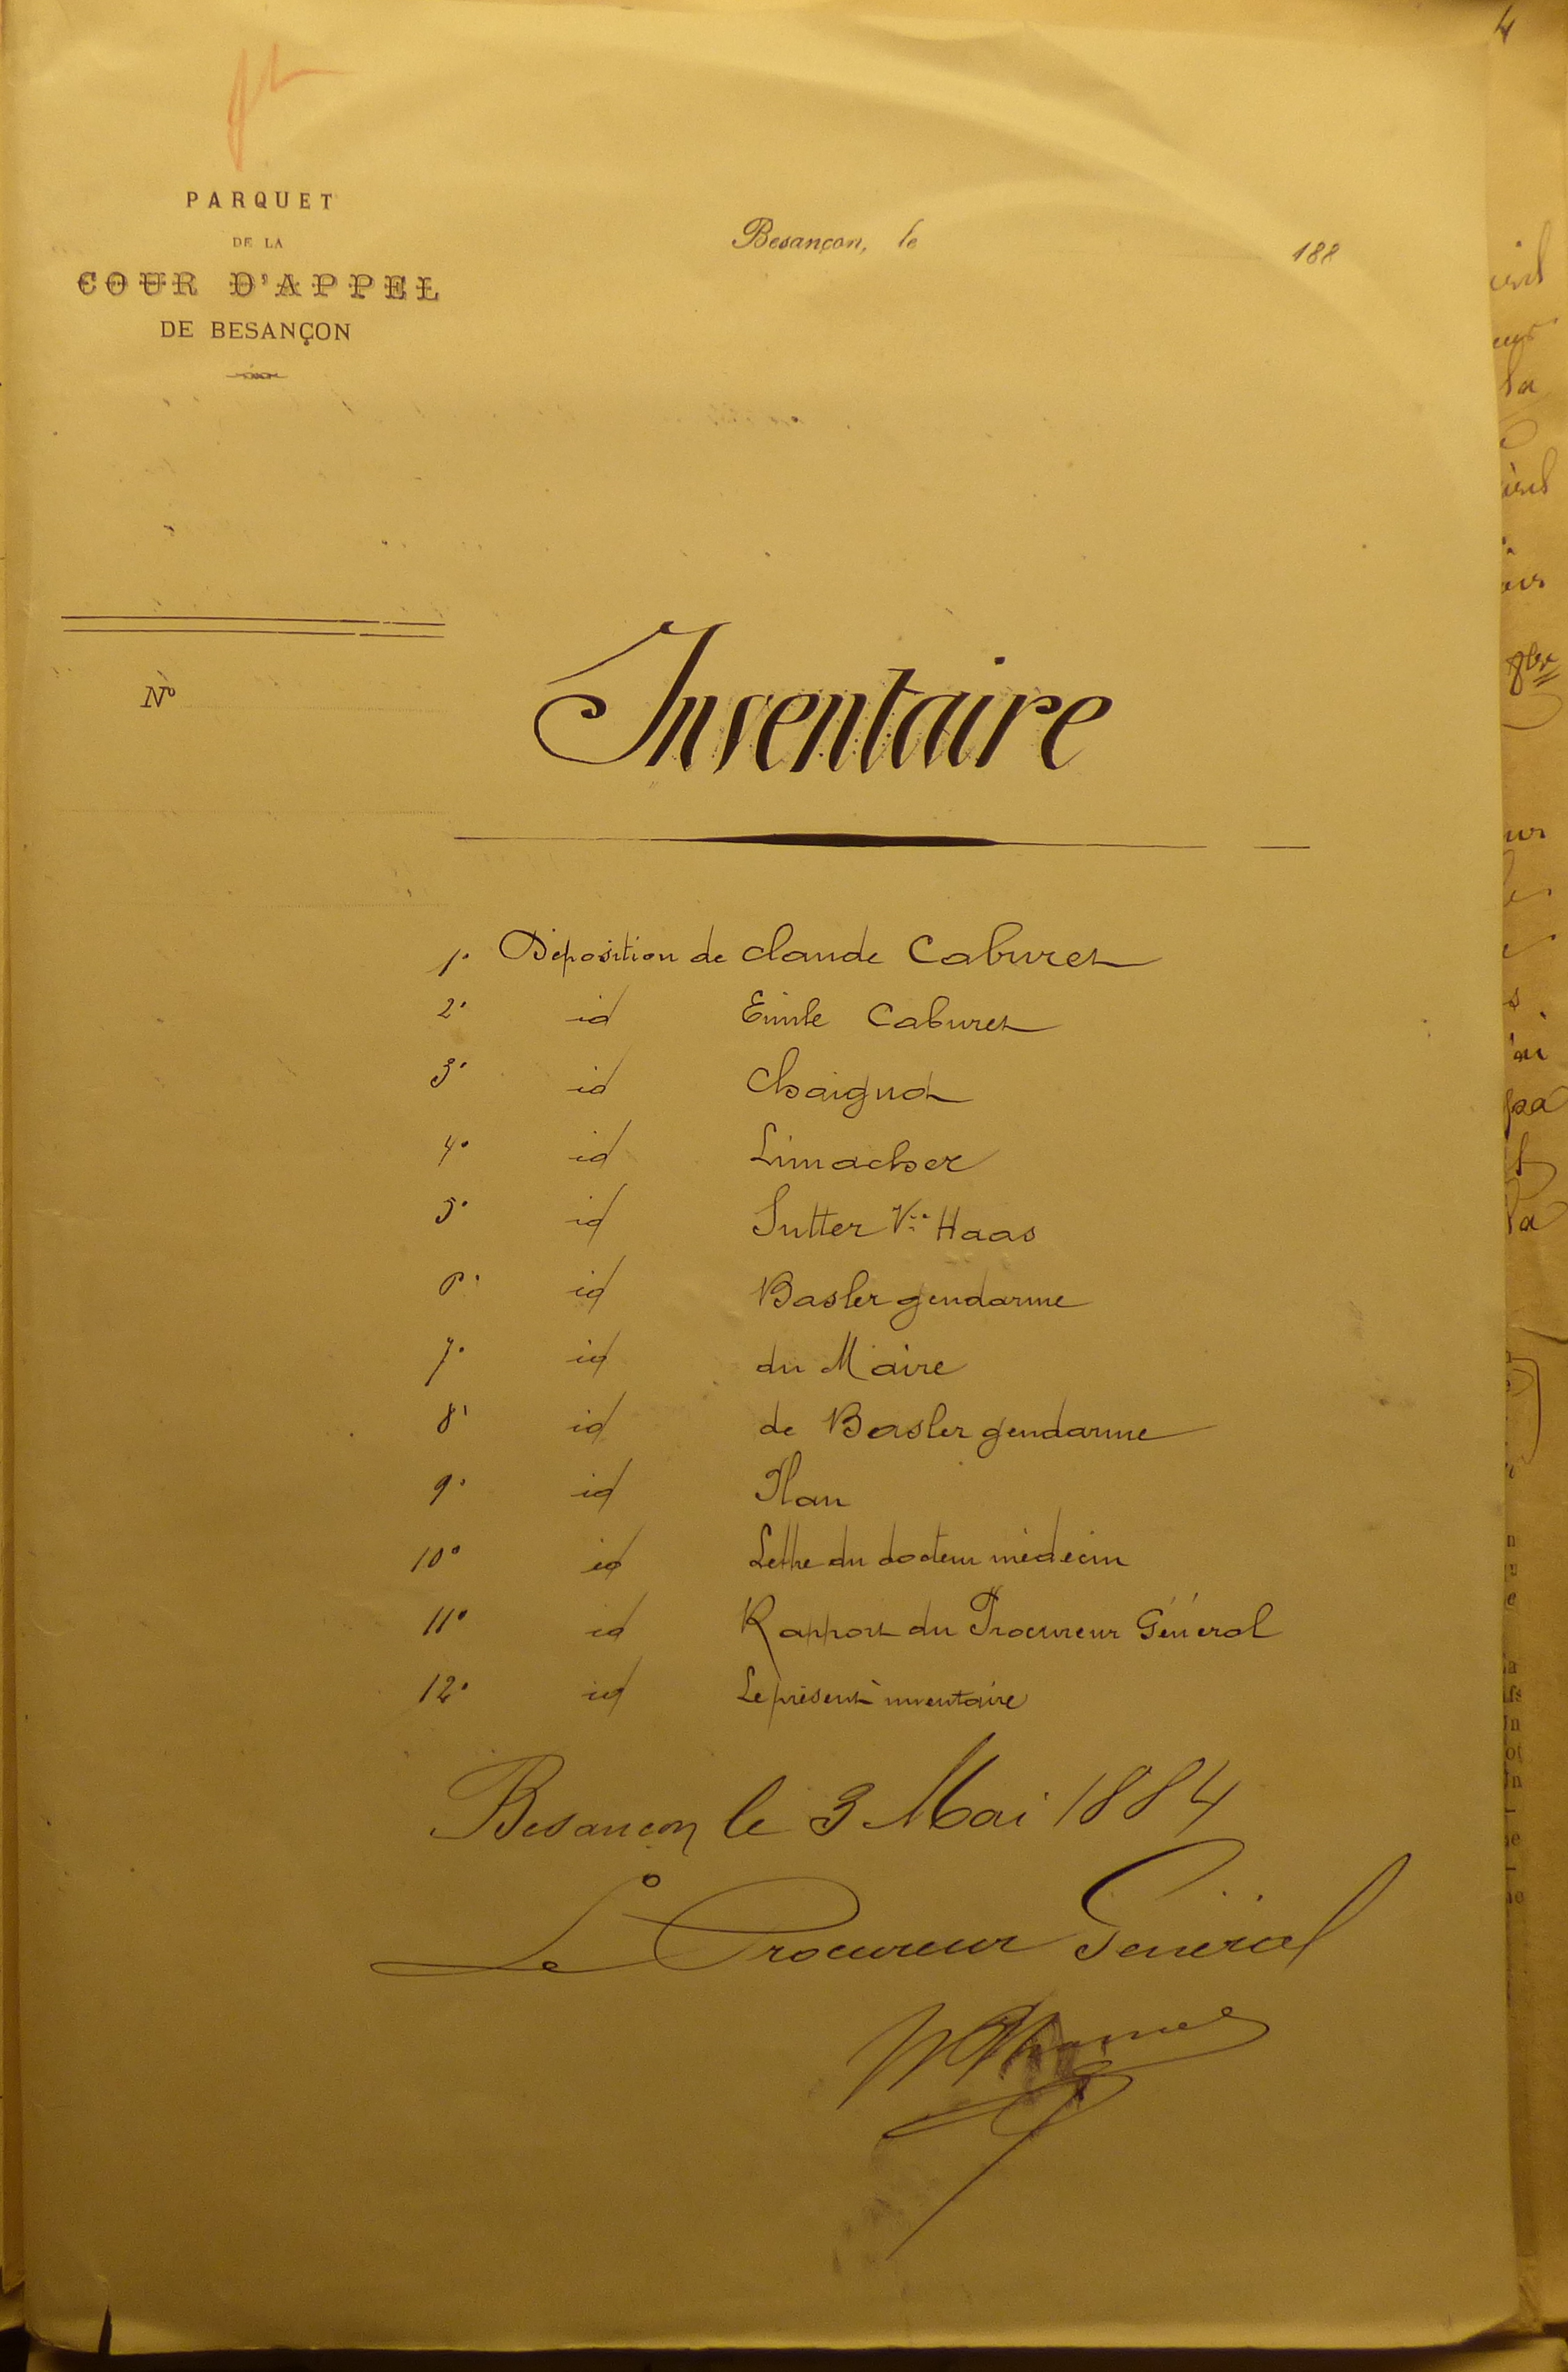 PARQUET
DE LA
COUR D'APPEL
DE BESANÇON
Besançon, le 188
Nº
Inventaire
1º Déposition de Claude Caburet
2º id Emile Caburet
3º id Chaignot
4º id Limacher
5º id Sutter Vve Haas
6º id Basler gendarme
7º id du Maire
8º id de Basler gendarme
9º id Plan
10º id Lettre du docteur médecin
11º id Rapport du Procureur Général
12º id Le présent inventaire
Besançon le 3 Mai 1884
Le Procureur Général